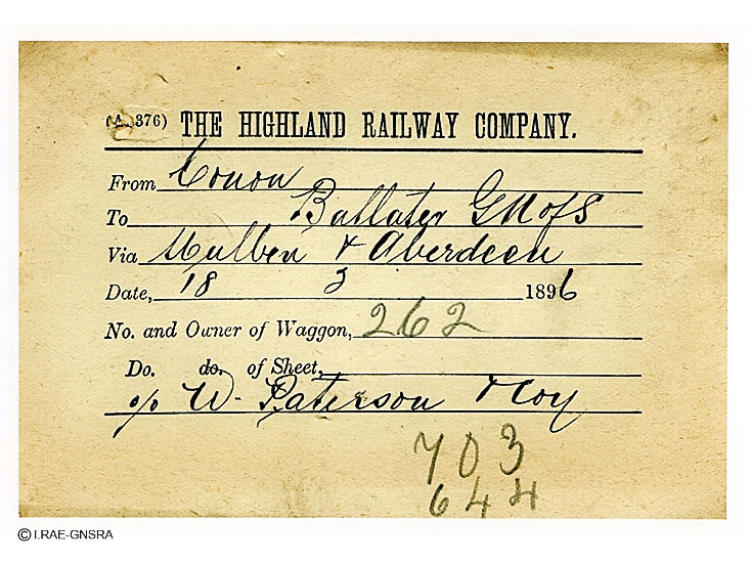 (A. 376) THE HIGHLAND RAILWAY COMPANY.
From Conon
To Ballater GNofS
Via Mulben & Aberdeen
Date, 18 3 1896
No. and Owner of Waggon, 262
Do. do. of Sheet,
o/o W. Paterson & Coy
703
644
© I.RAE-GNSRA